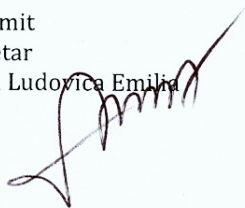 mit
etar
Ludovica Emilia